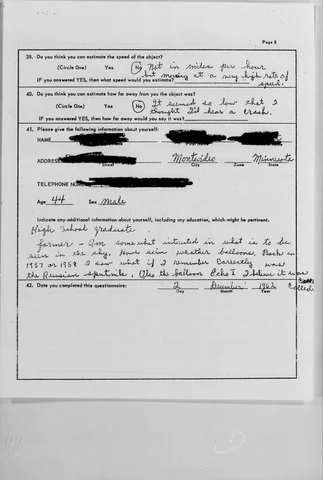 Page 3
39. Do you think you can estimate the speed of the object?
(Circle One) Yes No Not in miles per hour
but moving at a very high rate of
IF you answered YES, then what speed would you estimate? speed.
40. Do you think you can estimate how far away from you the object was?
(Circle One) Yes No It seemed so low that I
thought I'd hear a crash.
IF you answered YES, then how far away would you say it was?
41. Please give the following information about yourself:
NAME
ADDRESS Montevideo Minnesota
Street City Zone State
TELEPHONE
Age 44 Sex Male
Indicate any additional information about yourself, including any education, which might be pertinent.
High School graduate
farmer - Am somewhat intrusted in what is to be
seen in the sky, Have seen weather balloons, Back in
1957 or 1958 I saw what if I remember Corrently was
the Russian sputnike. Also the balloon Echo I I believe it was
Called.
42. Date you completed this questionnaire: 2 December 1962
Day Month Year